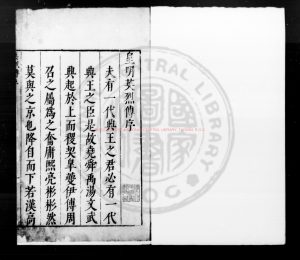 皇明英烈傳序
夫有一代興王之君必有一代
興王之臣是故堯舜禹湯文武
興起於上而稷契皋夔伊傅周
召之屬為之奮庸熙亮彬彬然
莫與之京也降自而下若漢高
CENTRAL LIBRARY